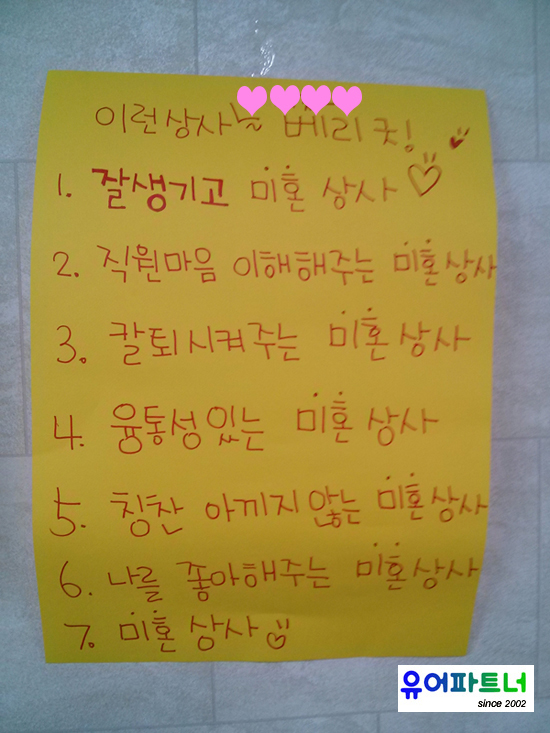 이런상사는 베리굿!
1. 잘생기고 미혼 상사
2. 직원마음 이해해주는 미혼상사
3. 칼퇴시켜주는 미혼상사
4. 융통성있는 미혼상사
5. 칭찬 아끼지않는 미혼상사
6. 나를 좋아해주는 미혼상사
7. 미혼상사
유어파트너
since 2002